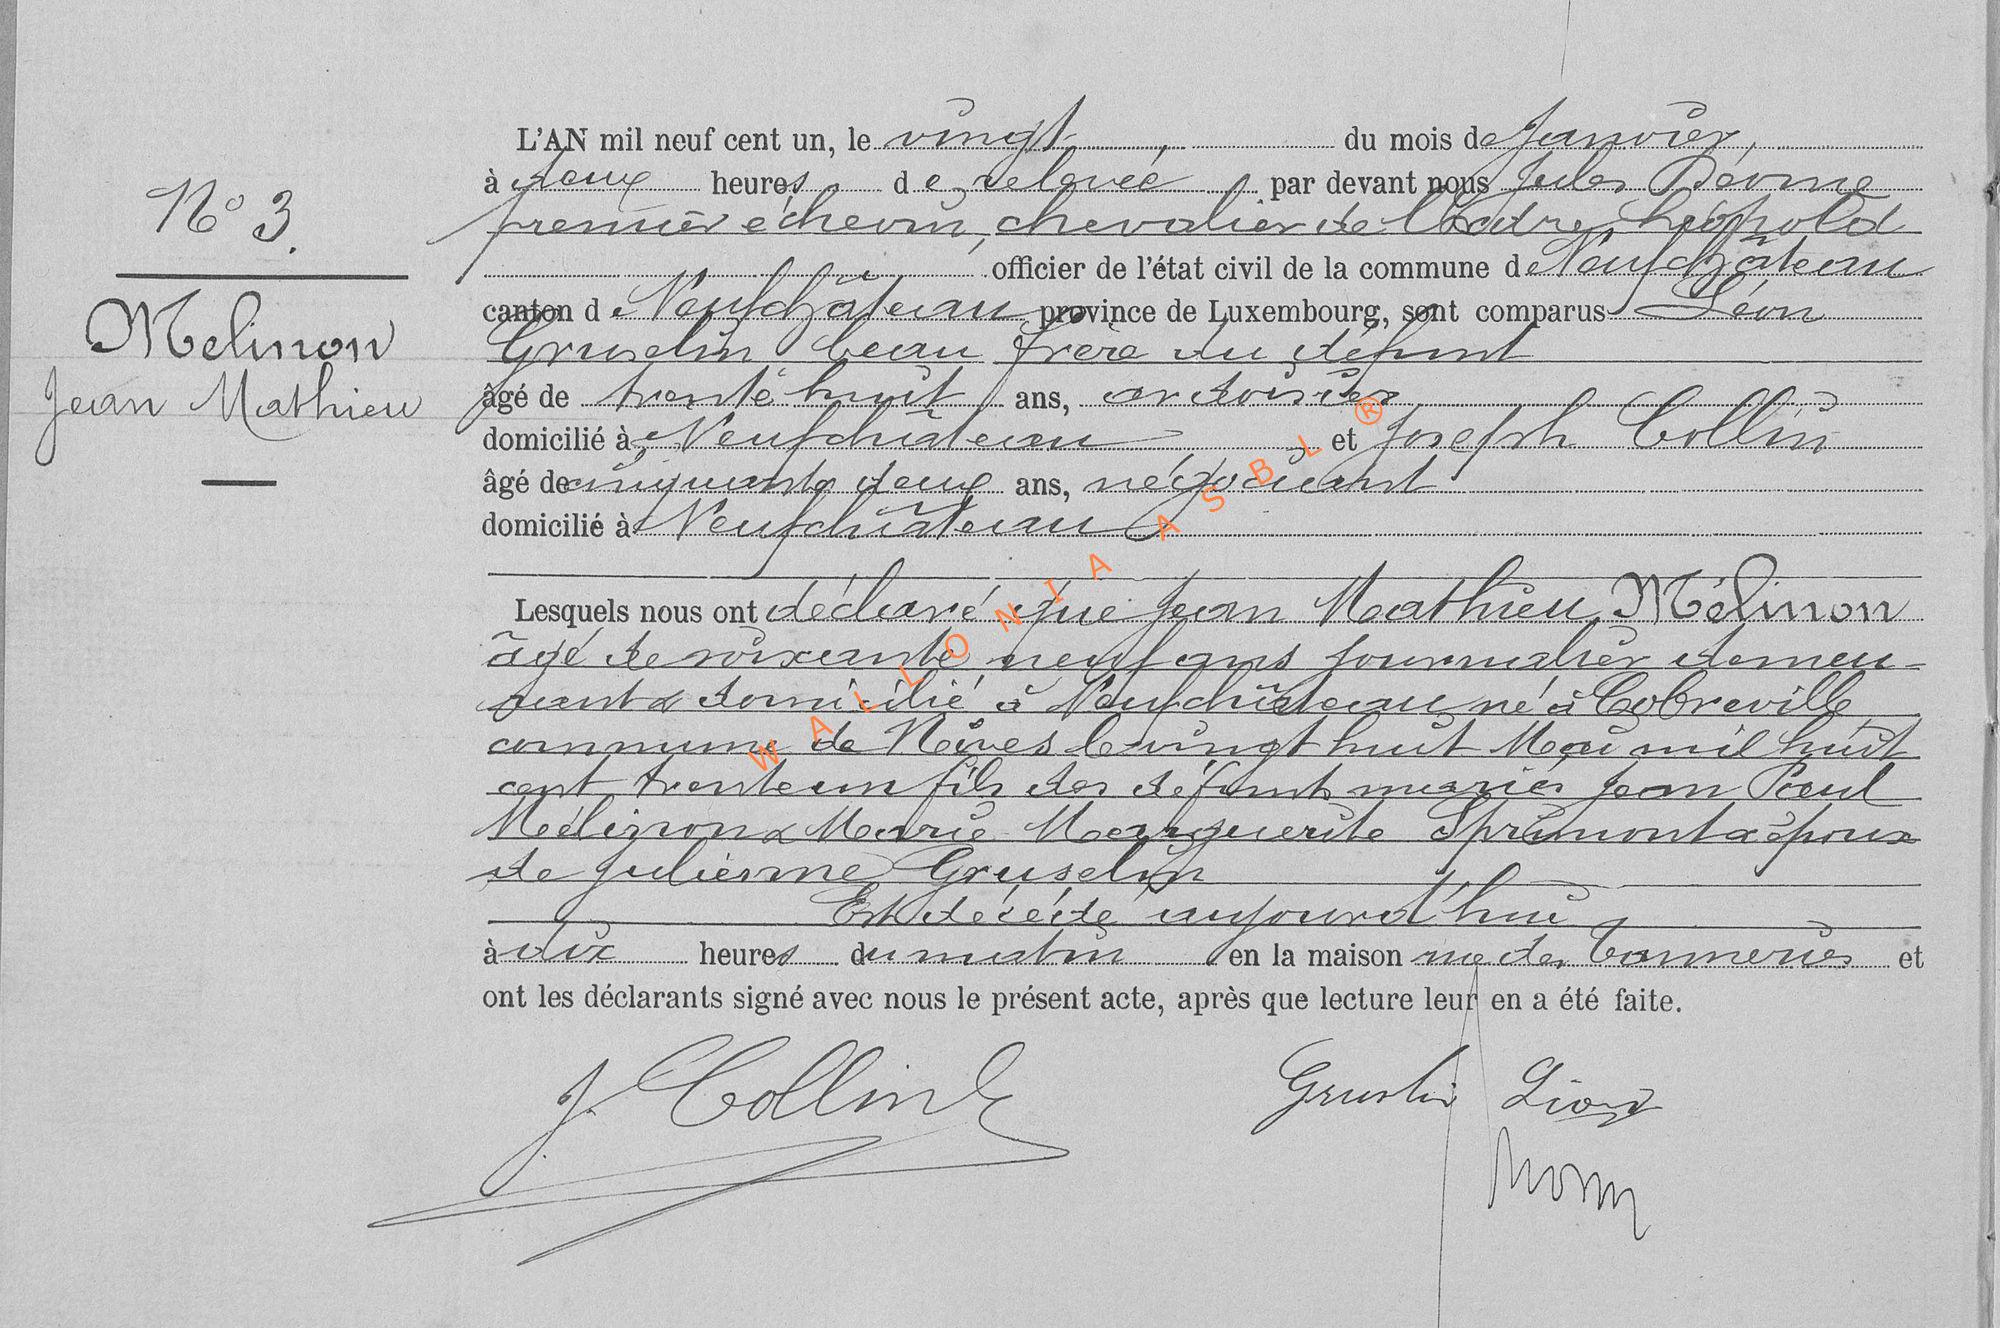 N° 3.
Mélinon
Jean Mathieu
L'AN mil neuf cent un, le vingt, du mois de Janvier,
à deux heures de relevée par devant nous Jules
premier échevin, chevalier de l'ordre Léopold
officier de l'état civil de la commune de Neufchâteau
canton de Neufchâteau province de Luxembourg, sont comparus Léon
Gruslin beau frère du défunt
âgé de trente huit ans, ardoisier
domicilié à Neufchâteau et Joseph Collin
âgé de cinquante deux ans, négociant
domicilié à Neufchâteau
Lesquels nous ont déclaré que Jean Mathieu Mélinon
âgé de soixante neuf ans journalier demeu-
rant & domicilié à Neufchâteau né à Cobreville
commune de Nives le vingt huit Mai mil huit
cent trente un fils des défunts mariés Jean Paul
Mélinon & Marie Marguerite Sprimont & époux
de Julienne Gruslin
Est décédé aujourd'hui
à dix heures du matin en la maison rue des Tanneries et
ont les déclarants signé avec nous le présent acte, après que lecture leur en a été faite.
J. Collin Gruslin Léon
WALLONIA ASBL ®